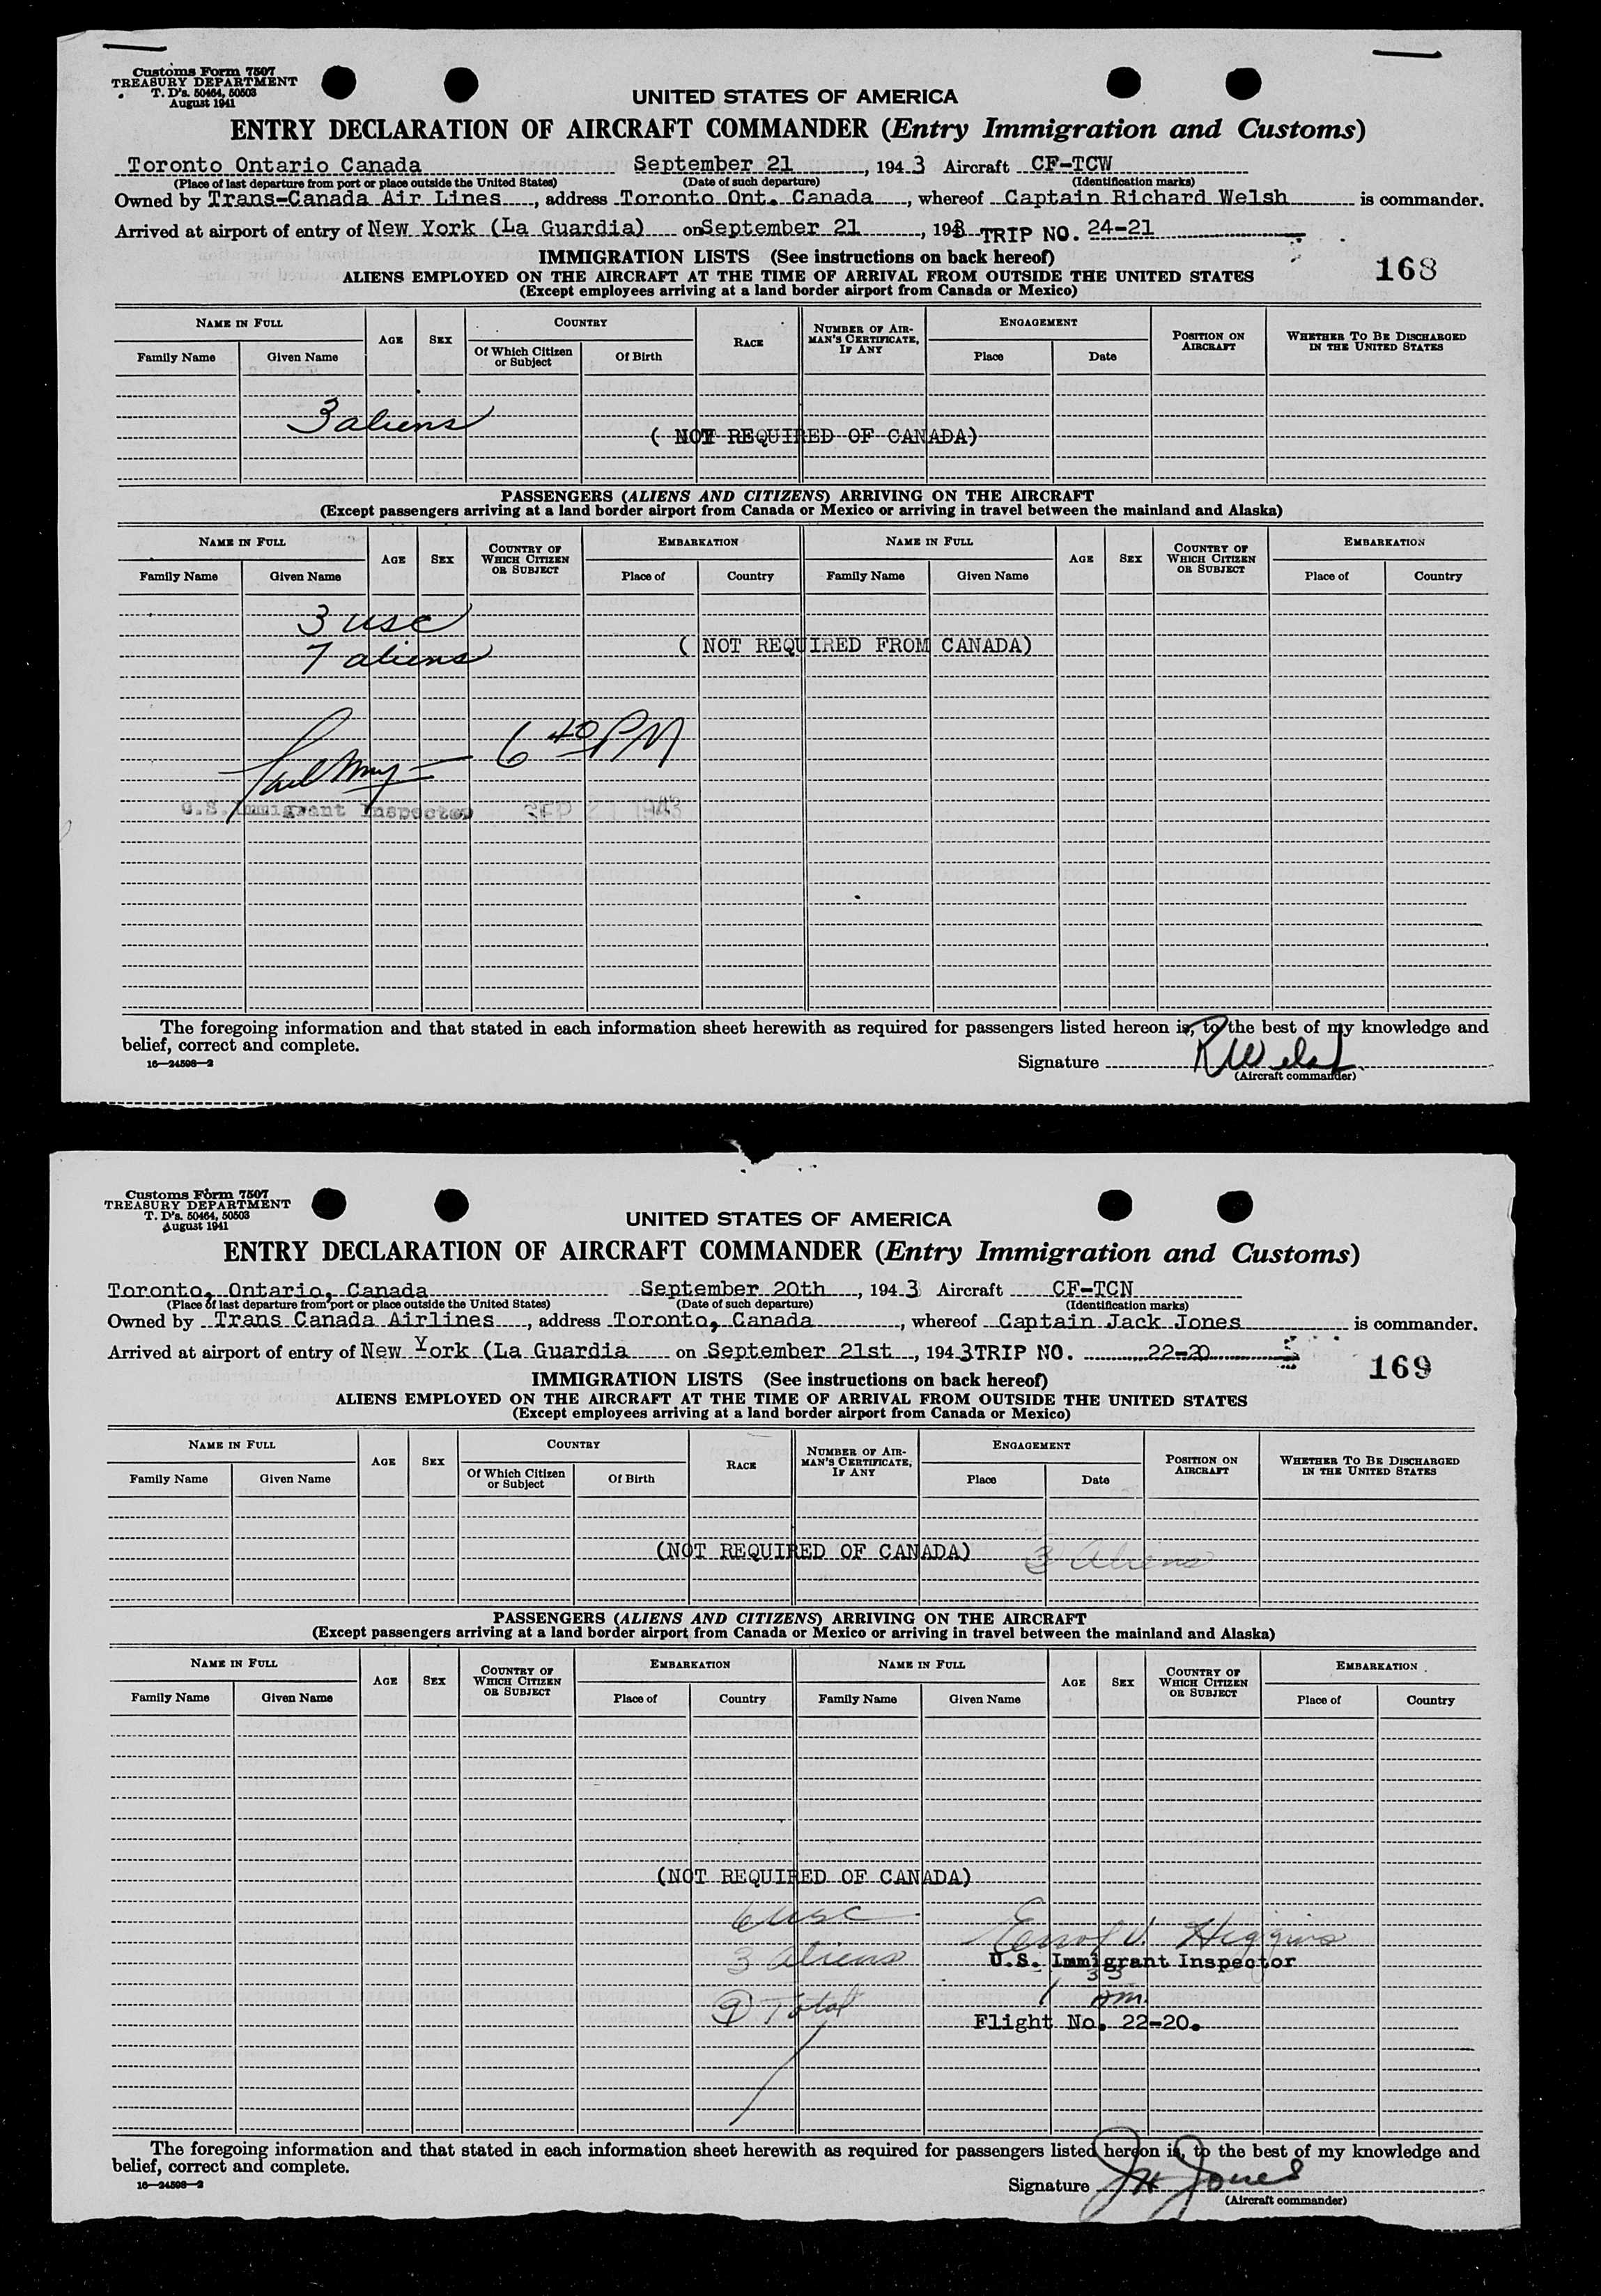 Customs Form 7507
TREASURY DEPARTMENT
T. D's. 50464, 50503
August 1941
UNITED STATES OF AMERICA
ENTRY DECLARATION OF AIRCRAFT COMMANDER (Entry Immigration and Customs)
Toronto Ontario Canada September 21, 1943 Aircraft CF-TCW
(Place of last departure from port or place outside the United States) (Date of such departure) (Identification marks)
Owned by Trans-Canada Air Lines, address Toronto Ont. Canada, whereof Captain Richard Welsh is commander.
Arrived at airport of entry of New York (La Guardia) on September 21, 1943 TRIP NO. 24-21
168
IMMIGRATION LISTS (See instructions on back hereof)
ALIENS EMPLOYED ON THE AIRCRAFT AT THE TIME OF ARRIVAL FROM OUTSIDE THE UNITED STATES
(Except employees arriving at a land border airport from Canada or Mexico)
NAME IN FULL AGE SEX COUNTRY RACE NUMBER OF AIRMAN'S CERTIFICATE, IF ANY ENGAGEMENT POSITION ON AIRCRAFT WHETHER TO BE DISCHARGED IN THE UNITED STATES
Family Name Given Name Of Which Citizen or Subject Of Birth Place Date
3 aliens
( NOT REQUIRED OF CANADA)
PASSENGERS (ALIENS AND CITIZENS) ARRIVING ON THE AIRCRAFT
(Except passengers arriving at a land border airport from Canada or Mexico or arriving in travel between the mainland and Alaska)
NAME IN FULL AGE SEX COUNTRY OF WHICH CITIZEN OR SUBJECT EMBARKATION NAME IN FULL AGE SEX COUNTRY OF WHICH CITIZEN OR SUBJECT EMBARKATION
Family Name Given Name Place of Country Family Name Given Name Place of Country
3 usc
7 aliens ( NOT REQUIRED FROM CANADA)
6 40 PM
U.S. Immigrant Inspector SEP 21 1943
The foregoing information and that stated in each information sheet herewith as required for passengers listed hereon is, to the best of my knowledge and
belief, correct and complete.
16—24598—2
Signature R Welsh
(Aircraft commander)
Customs Form 7507
TREASURY DEPARTMENT
T. D's. 50464, 50503
August 1941
UNITED STATES OF AMERICA
ENTRY DECLARATION OF AIRCRAFT COMMANDER (Entry Immigration and Customs)
Toronto, Ontario, Canada September 20th, 1943 Aircraft CF-TCN
(Place of last departure from port or place outside the United States) (Date of such departure) (Identification marks)
Owned by Trans Canada Airlines, address Toronto, Canada, whereof Captain Jack Jones is commander.
Arrived at airport of entry of New York (La Guardia on September 21st, 1943 TRIP NO. 22-20
169
IMMIGRATION LISTS (See instructions on back hereof)
ALIENS EMPLOYED ON THE AIRCRAFT AT THE TIME OF ARRIVAL FROM OUTSIDE THE UNITED STATES
(Except employees arriving at a land border airport from Canada or Mexico)
NAME IN FULL AGE SEX COUNTRY RACE NUMBER OF AIRMAN'S CERTIFICATE, IF ANY ENGAGEMENT POSITION ON AIRCRAFT WHETHER TO BE DISCHARGED IN THE UNITED STATES
Family Name Given Name Of Which Citizen or Subject Of Birth Place Date
(NOT REQUIRED OF CANADA) 3 Aliens
PASSENGERS (ALIENS AND CITIZENS) ARRIVING ON THE AIRCRAFT
(Except passengers arriving at a land border airport from Canada or Mexico or arriving in travel between the mainland and Alaska)
NAME IN FULL AGE SEX COUNTRY OF WHICH CITIZEN OR SUBJECT EMBARKATION NAME IN FULL AGE SEX COUNTRY OF WHICH CITIZEN OR SUBJECT EMBARKATION
Family Name Given Name Place of Country Family Name Given Name Place of Country
(NOT REQUIRED OF CANADA)
6 usc
Errol V. Higgins
3 aliens U.S. Immigrant Inspector
1 33 am.
9 Total
Flight No. 22-20.
The foregoing information and that stated in each information sheet herewith as required for passengers listed hereon is, to the best of my knowledge and
belief, correct and complete.
16—24598—2
Signature JH Jones
(Aircraft commander)